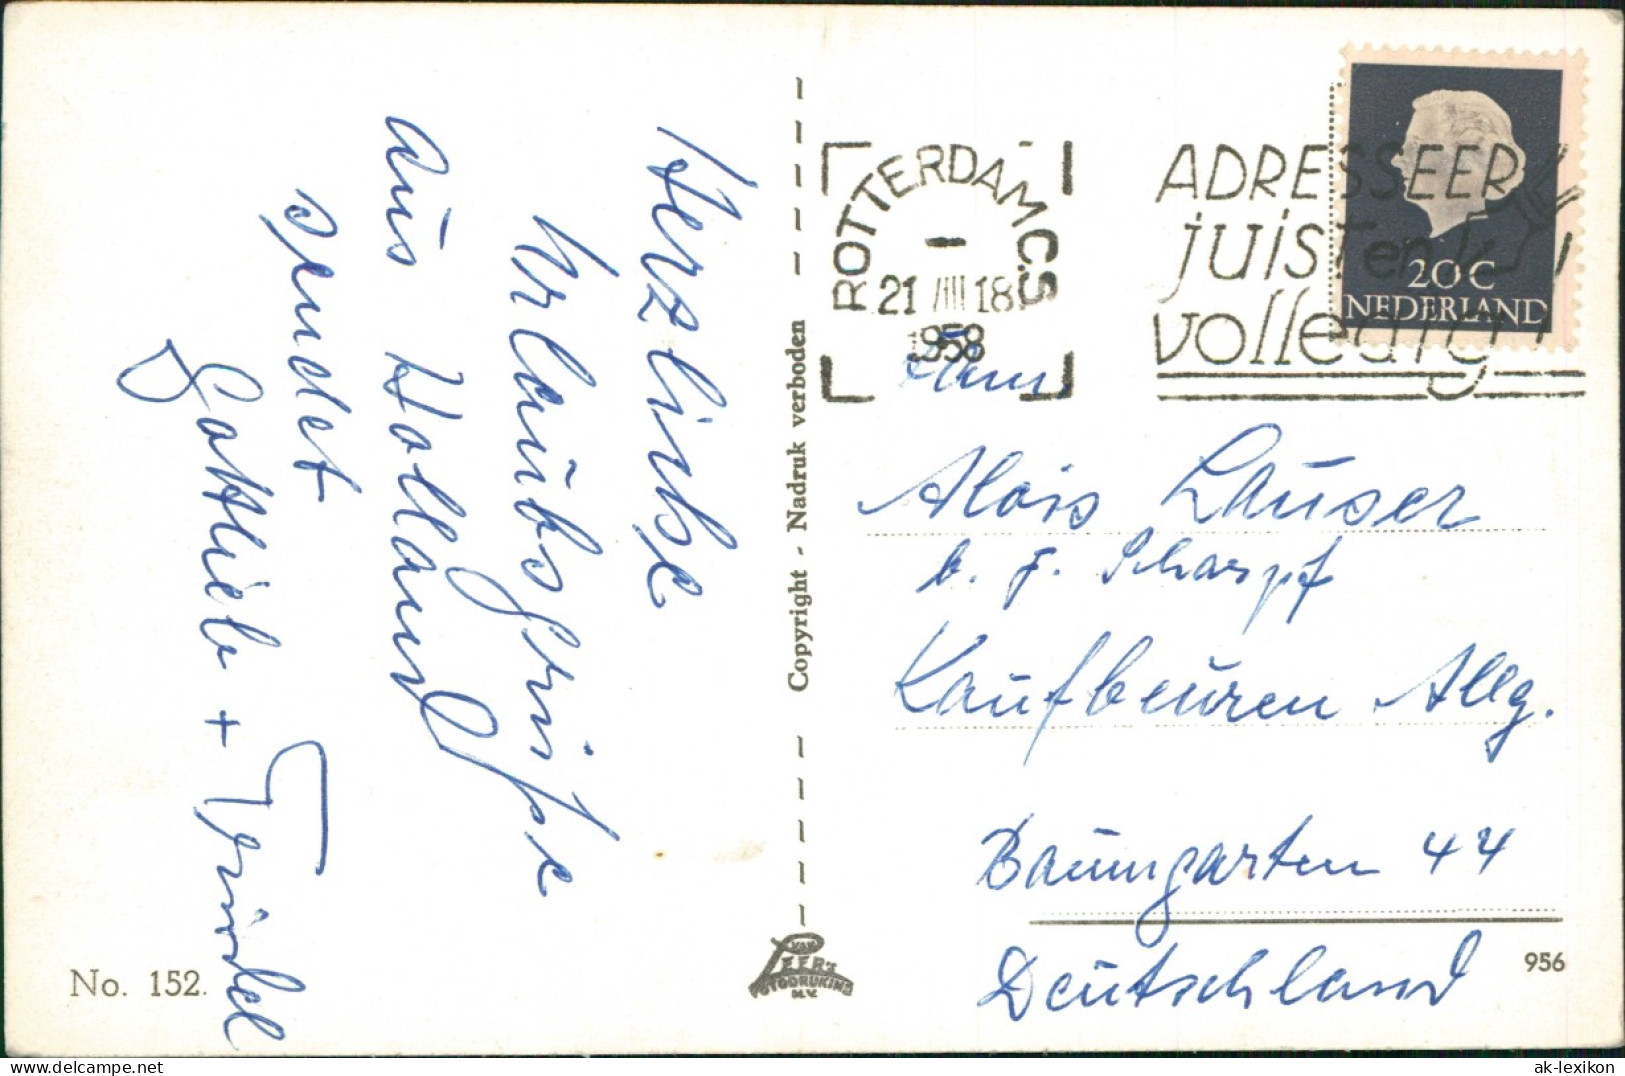 Herzliche
Urlaubsgrüße
aus Holland
sendet
Gottlieb +
No. 152.
Copyright - Nadruk verboden
VAN
LEER'S
FOTODRUKIND
N.V.
ROTTERDAM C.S
21 VIII 18
1958
ADRESSEER
juist en
volledig
20C
NEDERLAND
Fam.
Alois Lauser
b. J. Scharpf
Kaufbeuren Allg.
Baumgarten 44
Deutschland
956
www.delcampe.net
ak-lexikon